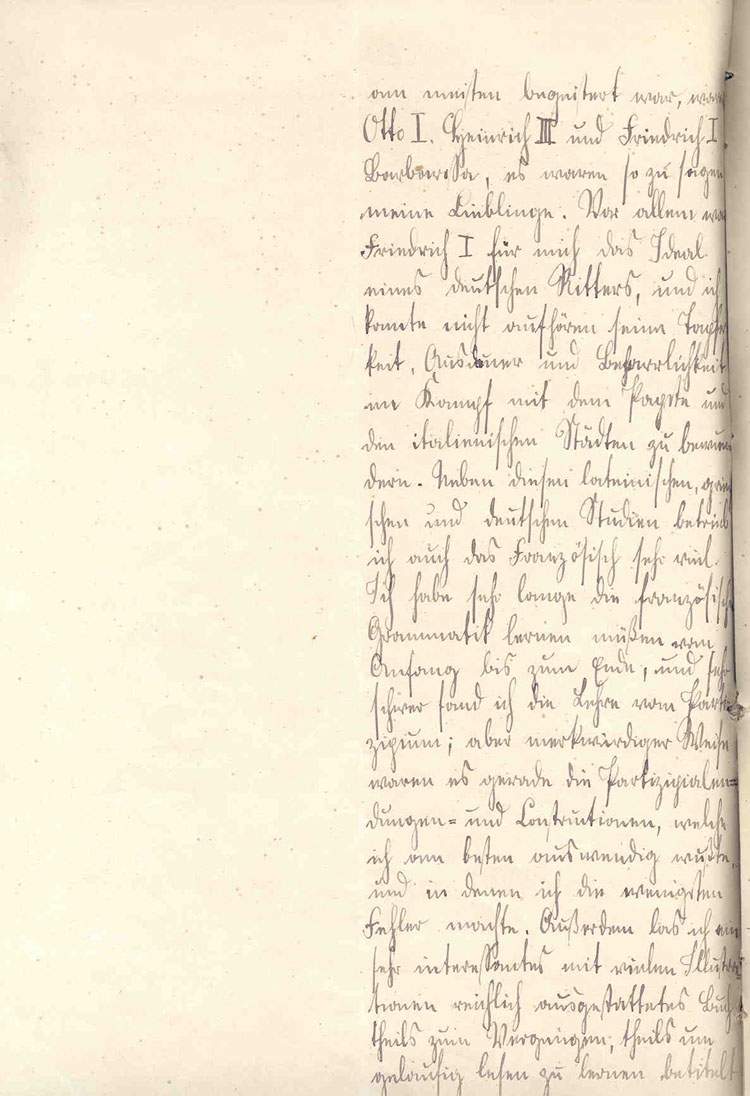 am meisten begeistert war, war
Otto I. Heinrich III und Friedrich I
Barbarossa, es waren so zu sagen
meine Lieblinge. Vor allem wa
Friedrich I für mich das Ideal
eines deutschen Ritters, und ich
konnte nicht aufhören seine Tapfer
keit, Ausdauer und Beharrlichkeit
im Kampf mit dem Papste und
den italienischen Städten zu bewun
dern. Neben diesen lateinischen, grie
schen und deutschen Studien betrieb
ich auch das Französisch sehr viel.
Ich habe sehr lange die französisch
Grammatik lernen müßen vom
Anfang bis zum Ende, und sehr
schwer fand ich die Lehre vom Parti
zipium; aber merkwürdiger Weise
waren es gerade die Partizipialen=
dungen= und Construtionen, welche
ich am besten auswendig wußte,
und in denen ich die wenigsten
Fehler machte. Außerdem las ich ein
sehr interessantes mit vielen Illustra
tionen reichlich ausgestattetes Buch
theils zum Vergnügen, theils um
geläufig lesen zu lernen betitelt